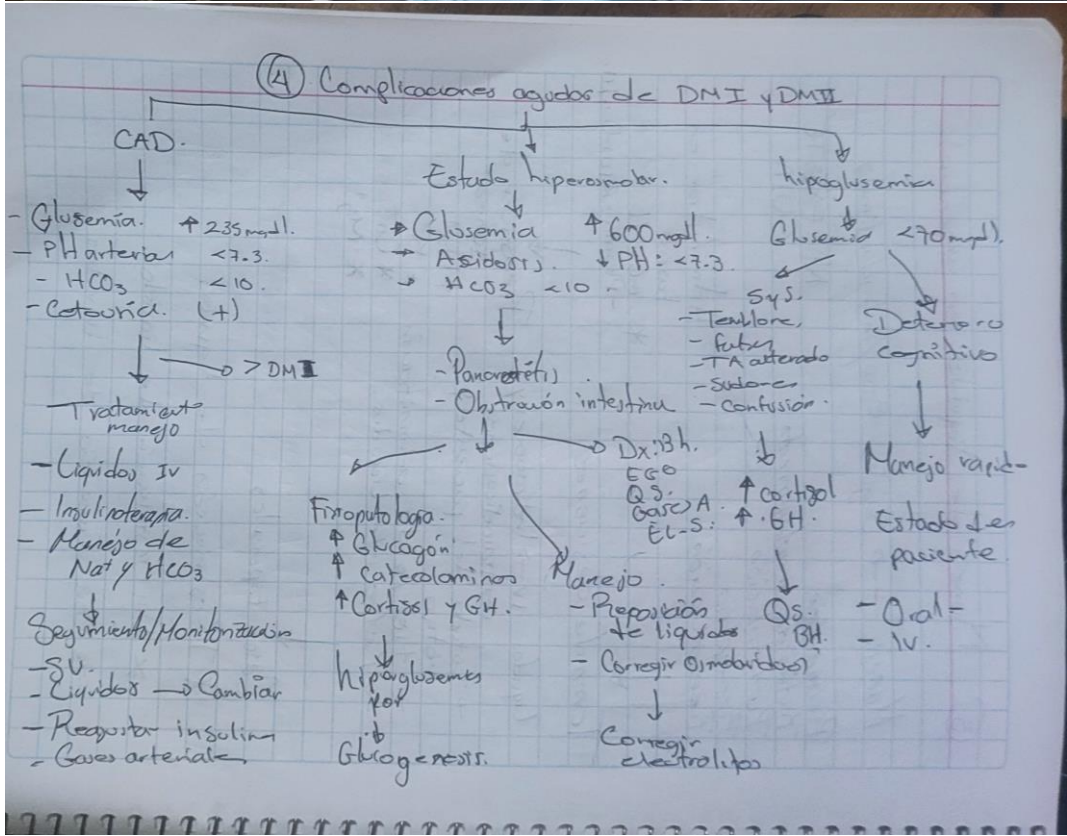 ④ Complicaciones agudas de DMI y DMII
CAD.
- Glusemía. ↑ 235 mg/dl.
- PH arterial <7.3.
- HCO3 <10.
- Cetouria. (+)
→ > DMI
Tratamiento
manejo
- Liquidos IV
- Insulinoterapia.
- Manejo de
Na+ y HCO3
Seguimiento/Monitorización
- SV.
- Liquidos → Cambiar
- Reajustar insulina
- Gases arteriales
Estado hiperosmolar.
→ Glosemia ↑ 600 mg/dl.
→ Asidosis. ↓ PH: <7.3.
→ HCO3 <10.
- Pancreatétis
- Obstrovón intestina
Fisiopatologia.
↑ Glucagón
↑ Catecolaminas
↑ Cortisol y GH.
por
Glucogenesis.
→ Dx: Bh.
EGO
QS.
Gaso A.
EL-S.
Manejo.
- Reposición
de liquidos
- Corregir
Corregir
electrolitos
hipoglusemia
Glusemia <70 mg/dl.
SyS.
- Temblore,
- TA alterado
- Sudore
- Confusión.
↑ Cortigol
↑ .GH.
QS.
BH.
Deterioro
cognitivo
Manejo rapid-
Estado del
paciente.
- Oral -
- IV.